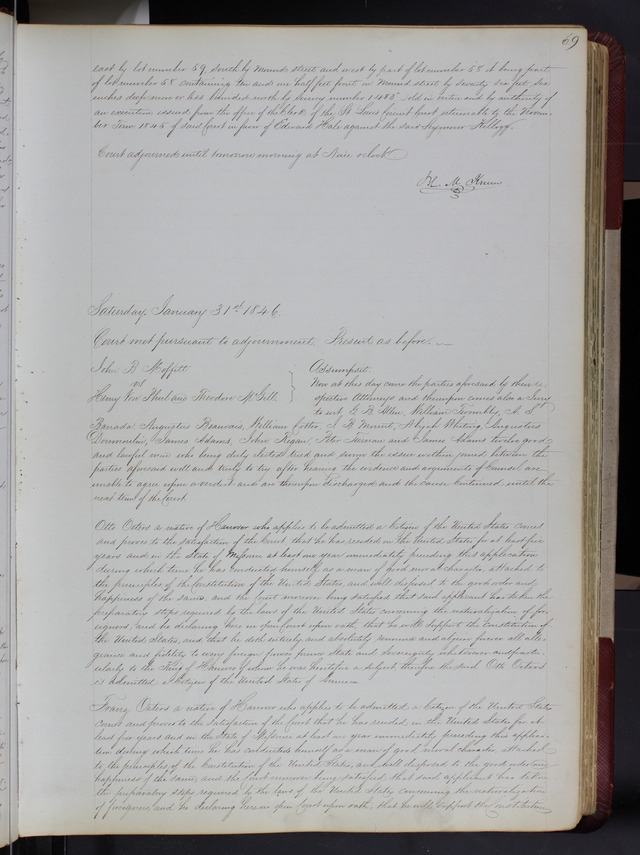 69
east by lot number 59, south by Mound street and west by part of lot number 58 it being part
of lot number 58 containing ten and one half feet front on Mound street by seventy six feet six
inches deep more or less bounded north by survey number 1485 sold in entire and by authority of
an execution issued from the office of the Clerk of the St Louis Circuit Court returnable to the Novem-
ber Term 1845 of said Court in favor of Edward Hale against the said Seymour Kellogg.
Court adjourned until tomorrow morning at Nine o'clock
M. Krum
Saturday January 31st 1846.
Court met pursuant to adjournment. Present as before.
John B Moffitt
vs
Henry Von Phul and Theodore McGill
Assumpsit.
Now at this day come the parties aforesaid by their re-
spective Attorneys and thereupon comes also a Jury
to wit, G B Allen, William Trombles, A. S.
Barada Augustus Beauvais, William Cotter, Abijah Whiting Augustus
James Adams, John Regan, Peter and James Adams twelve good
and lawful men who being duly elected tried and sworn the issue within joined between the
parties aforesaid well and truly to try after hearing the evidence and arguments of Counsel are
unable to agree upon a verdict and are thereupon discharged and the cause Continued until the
next term of the Court.
Otto Osters a native of Hanover who applies to be admitted a Citizen of the United States comes
and proves to the satisfaction of the Court that he has resided in the United States for at least five
years and in the State of Missouri at least one year immediately preceding this application
during which time he has conducted himself as a man of good moral character, attached to
the principles of the Constitution of the United States, and well disposed to the good order and
happiness of the same, and the Court moreover being satisfied that said applicant has taken the
preparatory steps required by the laws of the United States concerning the naturalization of for-
eigners, and he declaring here in open Court upon oath, that he will support the Constitution of
the United States, and that he doth entirely and absolutely renounce and abjure forever all alle-
giance and fidelity to every foreign power prince State and Sovereignty whatsoever and partic-
ularly to the King of Hanover of whom he was heretofore a subject, therefore the said Otto Osters
is admitted a Citizen of the United States of America
Franz Osters a native of Hanover who applies to be admitted a Citizen of the United States
comes and proves to the satisfaction of the Court that he has resided in the United States for at
least five years and in the State of Missouri at least one year immediately preceding this applica-
tion during which time he has conducted himself as a man of good moral character attached
to the principles of the Constitution of the United States, and well disposed to the good order and
happiness of the same, and the Court moreover being satisfied that said applicant has taken
the preparatory steps required by the laws of the United States concerning the naturalization
of foreigners, and he declaring here in open Court upon oath, that he will support the Constitution